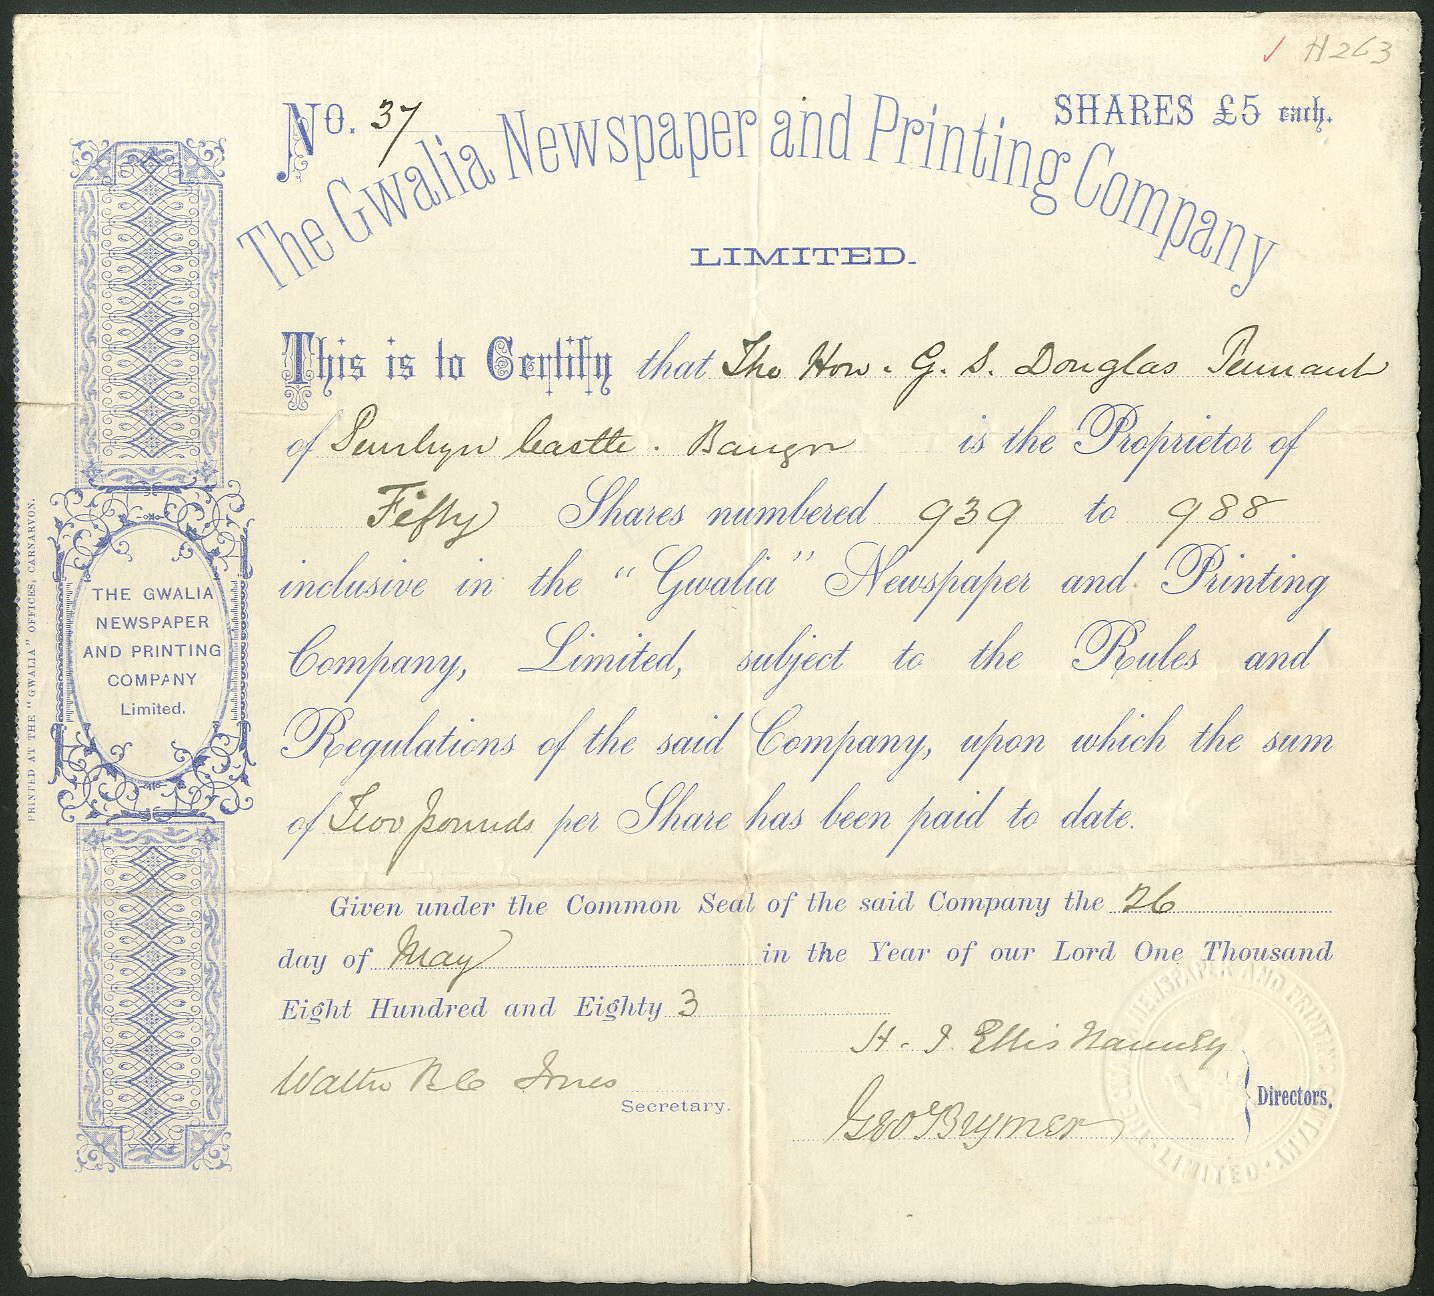 H263
No. 37
SHARES £5 each.
The Gwalia Newspaper and Printing Company
LIMITED.
This is to Certify that The Hon. G. S. Douglas Pennant
of Penrhyn Castle. Bangor is the Proprietor of
Fifty Shares numbered 939 to 988
inclusive in the "Gwalia" Newspaper and Printing
Company, Limited, subject to the Rules and
Regulations of the said Company, upon which the sum
of Two pounds per Share has been paid to date.
Given under the Common Seal of the said Company the 26
day of May in the Year of our Lord One Thousand
Eight Hundred and Eighty 3
H. J. Ellis Nanney
Walter B C Jones
Secretary.
Geo Brymer
Directors.
THE GWALIA
NEWSPAPER
AND PRINTING
COMPANY
Limited.
PRINTED AT THE "GWALIA" OFFICES, CARNARVON.
THE GWALIA NEWSPAPER AND PRINTING COMPANY
· LIMITED ·